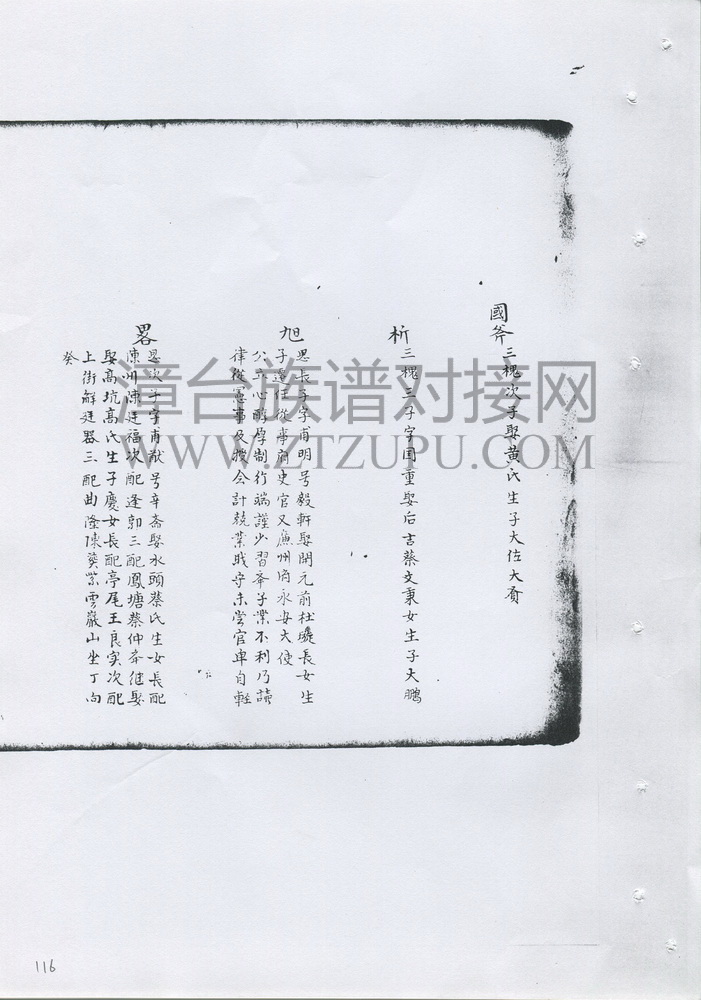 國斧 三槐次子娶黃氏生子大位大賓
析 三槐三子字國重娶后吉蔡文秉女生子大鵬
旭 思長子字甫明号毅軒娶開元前杜 長女生
子 任從事 史官又廉州府永安大使
公立心醇厚制行端謹少習舉子業不利乃讀
律從憲事及授会計兢業戝守未嘗官卑自輕
畧 思次子字甫猷号辛斋娶水頭蔡氏生女長配
陳州陳廷福次配逢郭三配鳳塘蔡仲 継娶
娶高坑高氏生子慶女長配亭尾王良实次配
上街解廷器三配曲隆陳 葵紫雲巖山坐丁向
癸
漳台族谱对接网
WWW.ZTZUPU.COM
116